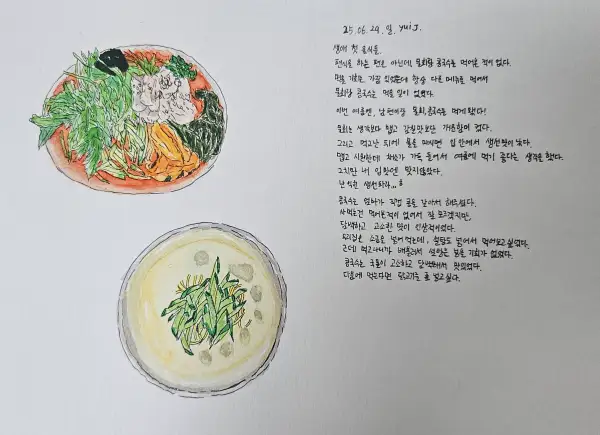 25.06.29.일. yui J.
생애 첫 음식들.
편식을 하는 편은 아닌데, 물회랑 콩국수는 먹어본 적이 없다.
먹을 기회는 가끔 있었는데 항상 다른 메뉴를 먹어서
물회랑 콩국수는 먹을 일이 없었다.
이번 여름엔, 남편이랑 물회, 콩국수를 먹게됐다!
물회는 생각보다 맵고 감칠맛보단 개운함이 컸다.
그리고 먹고난 뒤에 물을 마시면 입 안에서 생선맛이 났다.
맵고 시원한데 야채가 가득 들어서 여름에 먹기 좋다는 생각을 했다.
그치만 내 입맛엔 맞지않았다.
난 익힌 생선파라...
콩국수는 엄마가 직접 콩을 갈아서 해주셨다.
사먹는건 먹어본적이 없어서 잘 모르겠지만,
담백하고 고소한 맛이 인상적이었다.
우리집은 소금을 넣어 먹는데, 설탕도 넣어서 먹어보고 싶었다.
근데 먹고나니까 배불러서 설탕은 넣을 기회가 없었다.
콩국수는 국물이 고소하고 담백해서 맛있었다.
다음에 먹는다면 닭고기를 좀 넣고싶다.